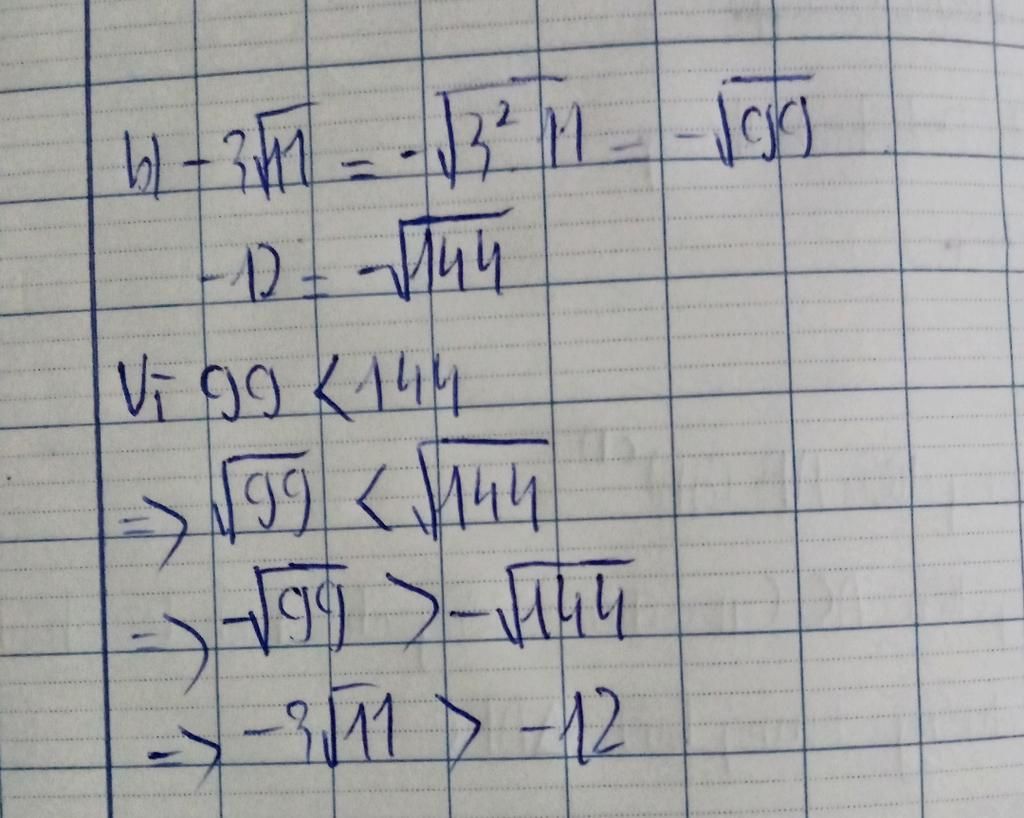 b) -3√11 = -√3² 11 = -√99
-12 = -√144
Vì 99 < 144
=> √99 < √144
=> -√99 > -√144
=> -3√11 > -12